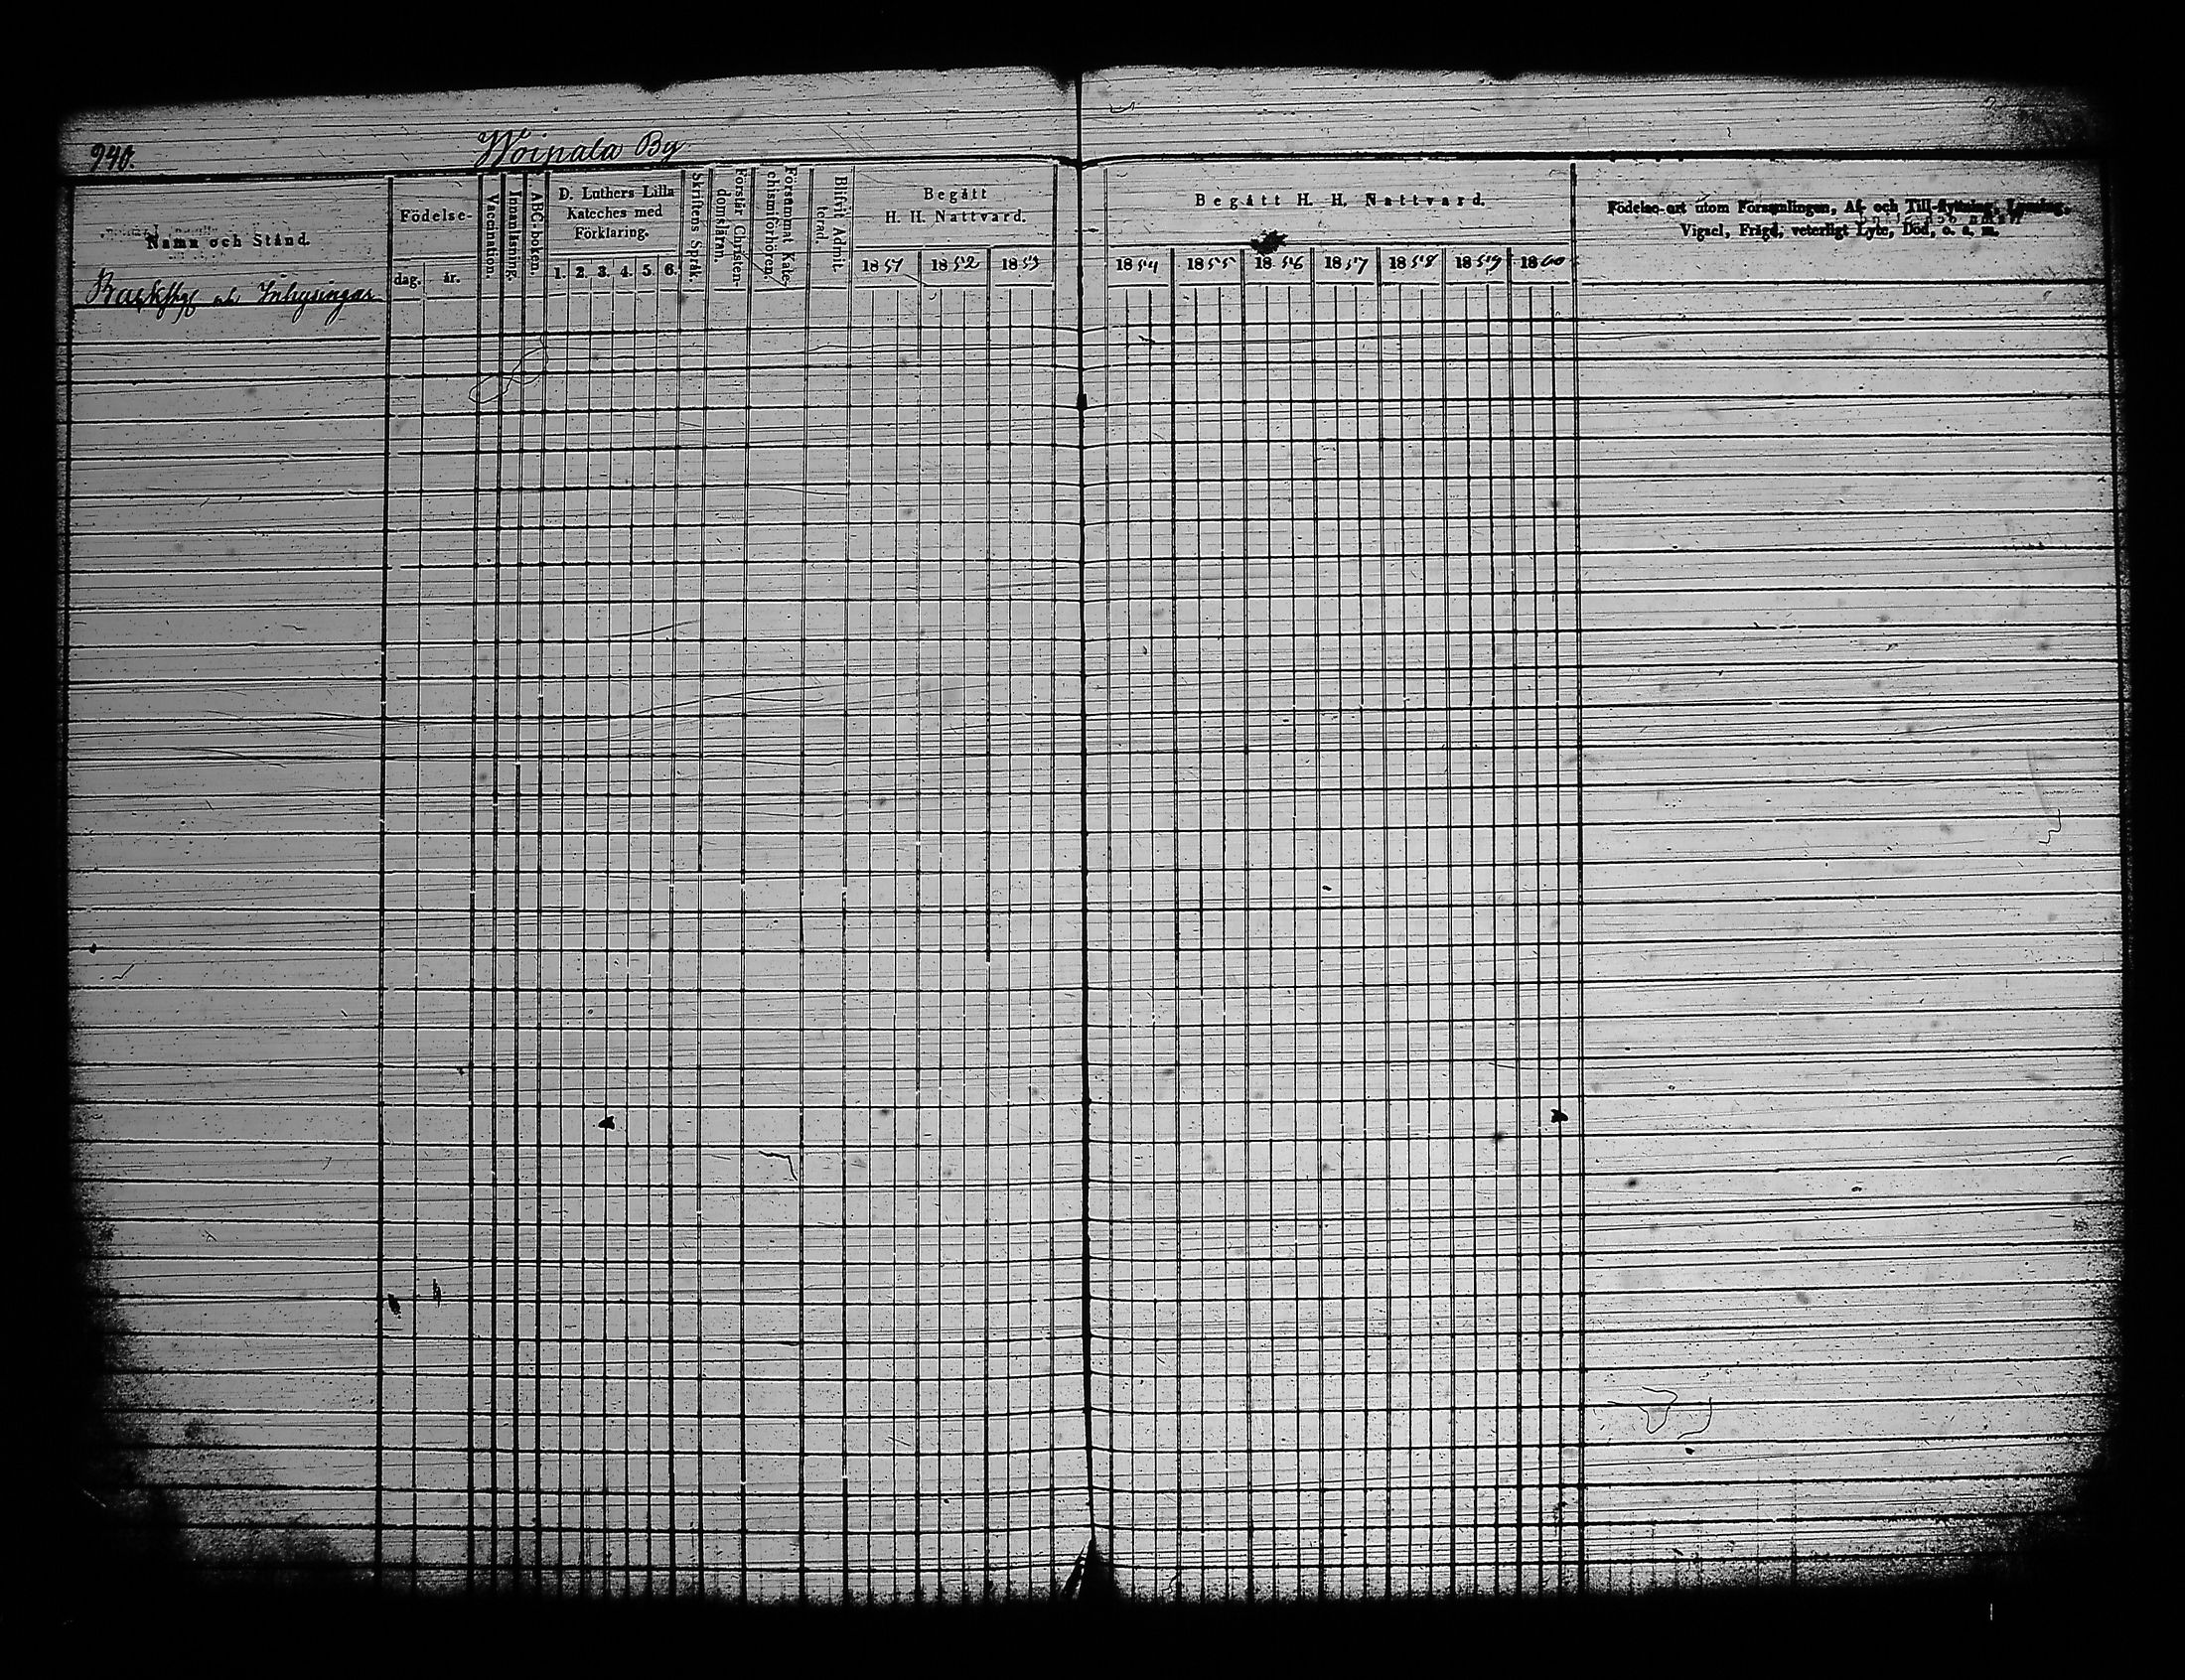 940.
Woipala By
Namn och Stånd.
Födelse-
dag. år.
Vaccination.
Innanläsning.
ABC-boken.
D. Luthers Lilla
Kateches med
Förklaring.
1. 2. 3. 4. 5. 6.
Skriftens Språk.
Förstår Christen-
domsläran.
Försummat Kate-
chismiförhören.
Blifvit Admit-
terad.
Begått
H. H. Nattvard.
1851 1852 1853
Begått H. H. Nattvard.
1854 1855 1856 1857 1858 1859 1860
Födelse-ort utom Församlingen, Af- och Till-flyttning, Lysning,
Vigsel, Frägd, veterligt Lyte, Död, o. s. m.
Inhysingar